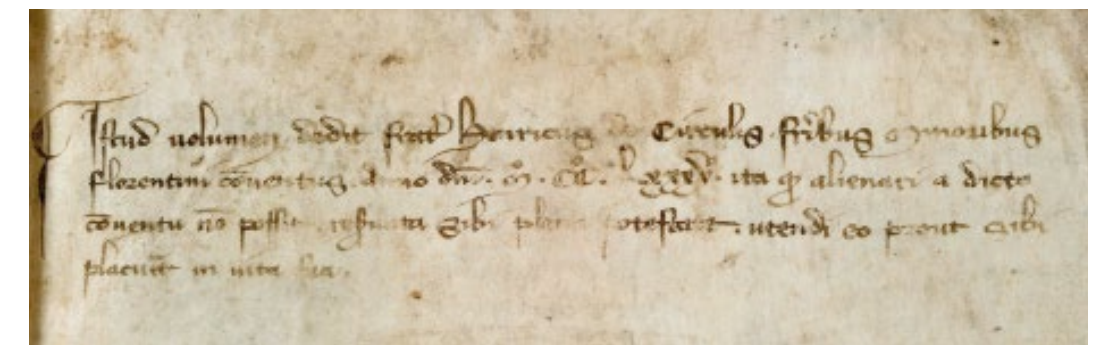 Istud uolumen dedit frater Henricus de Circulis fribus minoribus
florentini conuentus anno dni. M. CC. lxxxv. ita qd alienari a dicto
conuentu no possit reseruata sibi plena potestate utendi eo prout sibi
placuerit in uita sua.